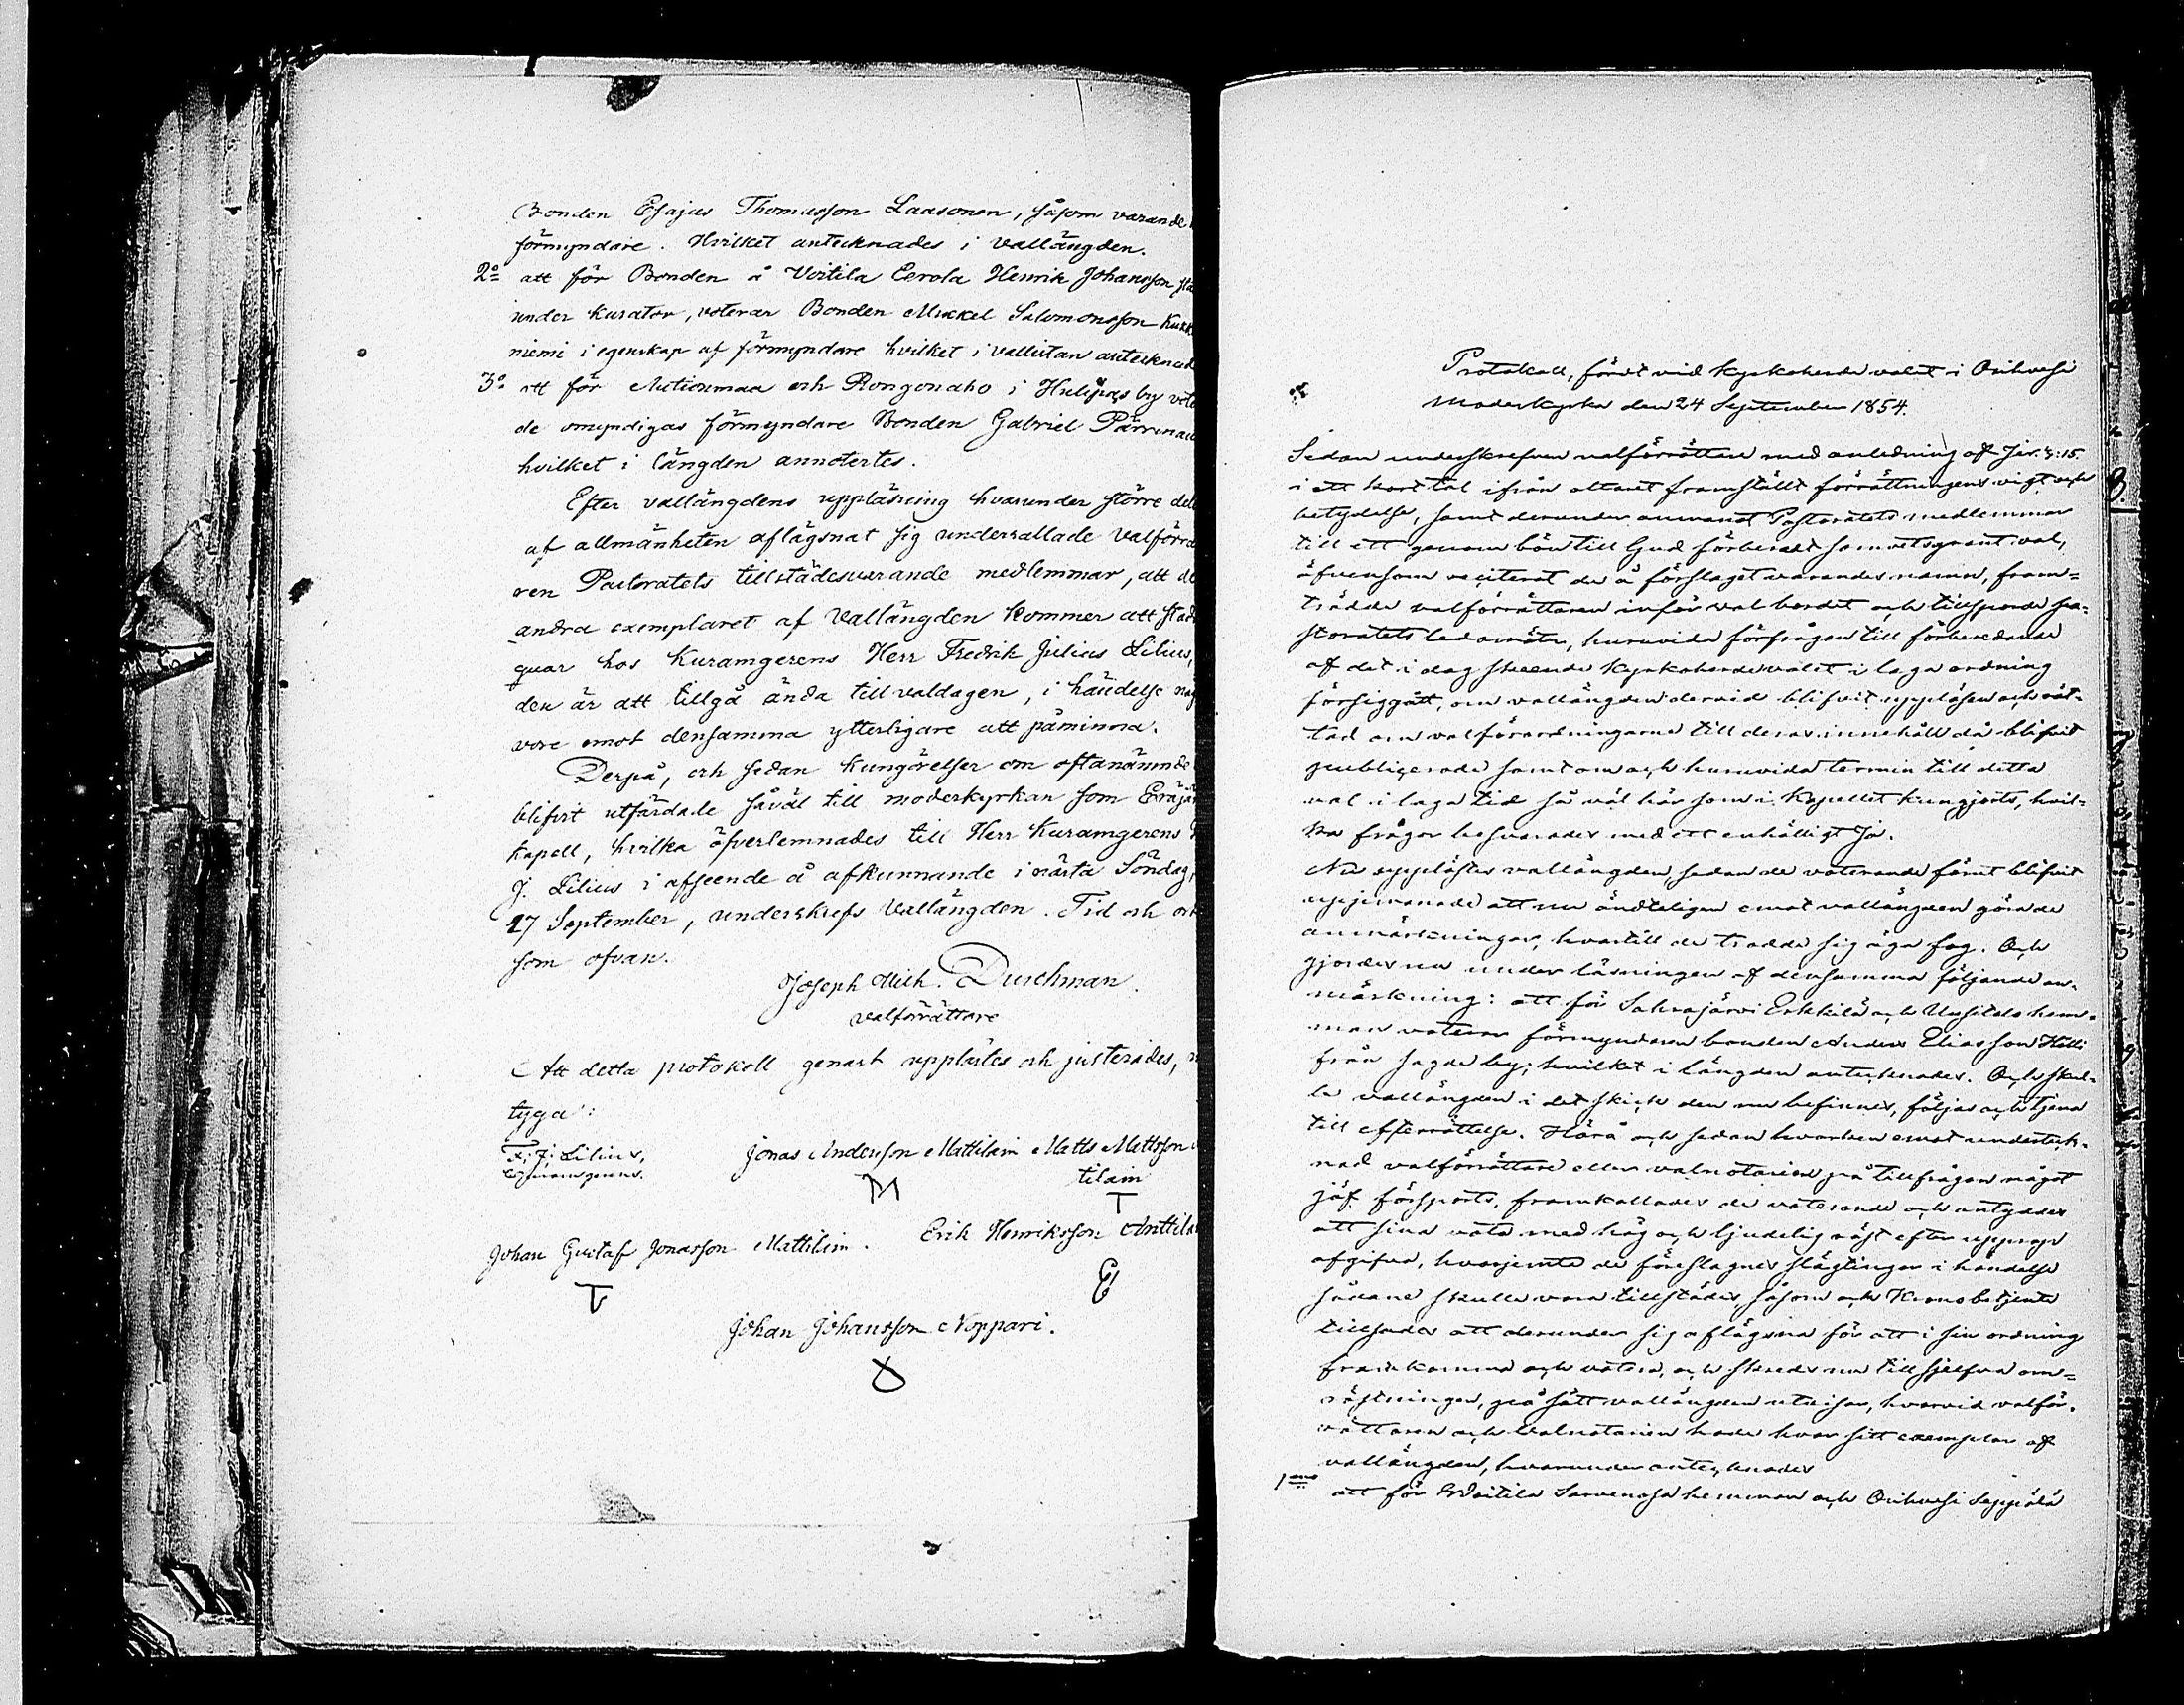 Bonden Esajas Thomasson Laasonen, såsom varande
förmyndare. Hvilket antecknades i vallängden.
2o att för Bonden å Voitila Eerola Henrik Johansson stå
under kurator, voterar Bonden Mickel Salomonsson Kukk
niemi i egenskap af förmyndare hvilket i vallistan antecknad
3o att för Antionmaa och Rongonaho i Hulipas by vote
de omyndigas förmyndare Bonden Gabriel Pärrinau
hvilket i längden annotertes.
Efter vallängdens uppläsning hvarunder större del
af allmänheten aflägsnat sig underrättade Valförrä
ren Pastoratets tillstädesvarande medlemmar, att de
andra exemplaret af Vallängden kommer att stad
qvar hos Kuramgerens Herr Fredrik Julius Lilius,
den är att tillgå ända till valdagen, i händelse någ
vore emot densamma ytterligare att påminna.
Derpå, och sedan kungörelser om oftanämnde
blifvit utfärdade såväl till moderkyrkan som Eräjär
kapell, hvilka öfverlemnades till Herr Kuramgerens
J. Lilius i afseende å afkunnande i nästa Söndag,
17 September, underskrefs Vallängden. Tid och ort
som ofvan.
Joseph Mich. Duschman.
valförrättare
Att detta protokoll genast upplästes och justerades,
tyga:
F. J. Lilius, Jonas Anderson Mattilain Matts Mattsson
tilain
M T
Johan Gustaf Jonasson Mattilain. Erik Henriksson Anttila
T E
Johan Johansson Noppari.
Protokoll, fördt vid Kyrkoherde valet i Orihvesi
Moderkyrka den 24 September 1854.
Sedan underskrefven valförrättare med anledning af Jer. 3:15.
i ett kort tal ifrån altaret framställt förrättningens vigt och
betydelse, samt derunder anmanat Pastoratets medlemmar
till ett genom bön till Gud förberedt samvetsgrant val,
äfvensom reciterat de å förslaget varandes namn, fram-
trädde valförrättaren inför valbordet och tillsporde pa-
storatets ledamöter, huruvida förfrågan till förberedande
af det i dag skeende Kyrkoherdevalet i laga ordning
försiggått, om vallängden dervid blifvit uppläsen och rät-
tad om valförordningarne till deras innehåll då blifvit
publicerade samt om och huruvida termin till detta
val i laga tid så väl här som i Kapellet kungjorts, hvil-
ka frågor besvarades med ett enhälligt Ja.
Nu upplästes vallängden, sedan de voterande förut blifvit
uppmanade att nu ändteligen emot vallängden göra de
anmärkningar, hvartill de trodde sig äga fog. Och
gjordes nu under läsningen af densamma följande an-
märkning: att för Sahrajärvi Erkkilä och Uusitalo hem-
man voterar förmyndaren bonden Anders Eliasson Hilli
från sagde by; hvilket i längden antecknades. Och skul-
le vallängden i det skick den nu befinnes, följas och tjena
till efterrättelse. Härå och sedan hvarken emot underteck-
nad valförrättare eller valnotarien på tillfrågan något
jäf försports, framkallades de voterande och antyddes
att sina vota med hög och ljudelig röst efter upprop
afgifva, hvarjemte de föreslagnes slägtingar i händelse
sådane skulle vara tillstädes, såsom och Kronobetjente
tillsades att derunder sig aflägsna för att i sin ordning
framkomma och votera, och skreds nu till sjelfva om-
röstningen, på sätt vallängden utvisar, hvarvid valför-
rättaren och Valnotarien hade hvar sitt exemplar af
vallängden, hvarunder antecknades
1mo att för Woitila Sarvenoja hemman och Orihvesi Seppälä